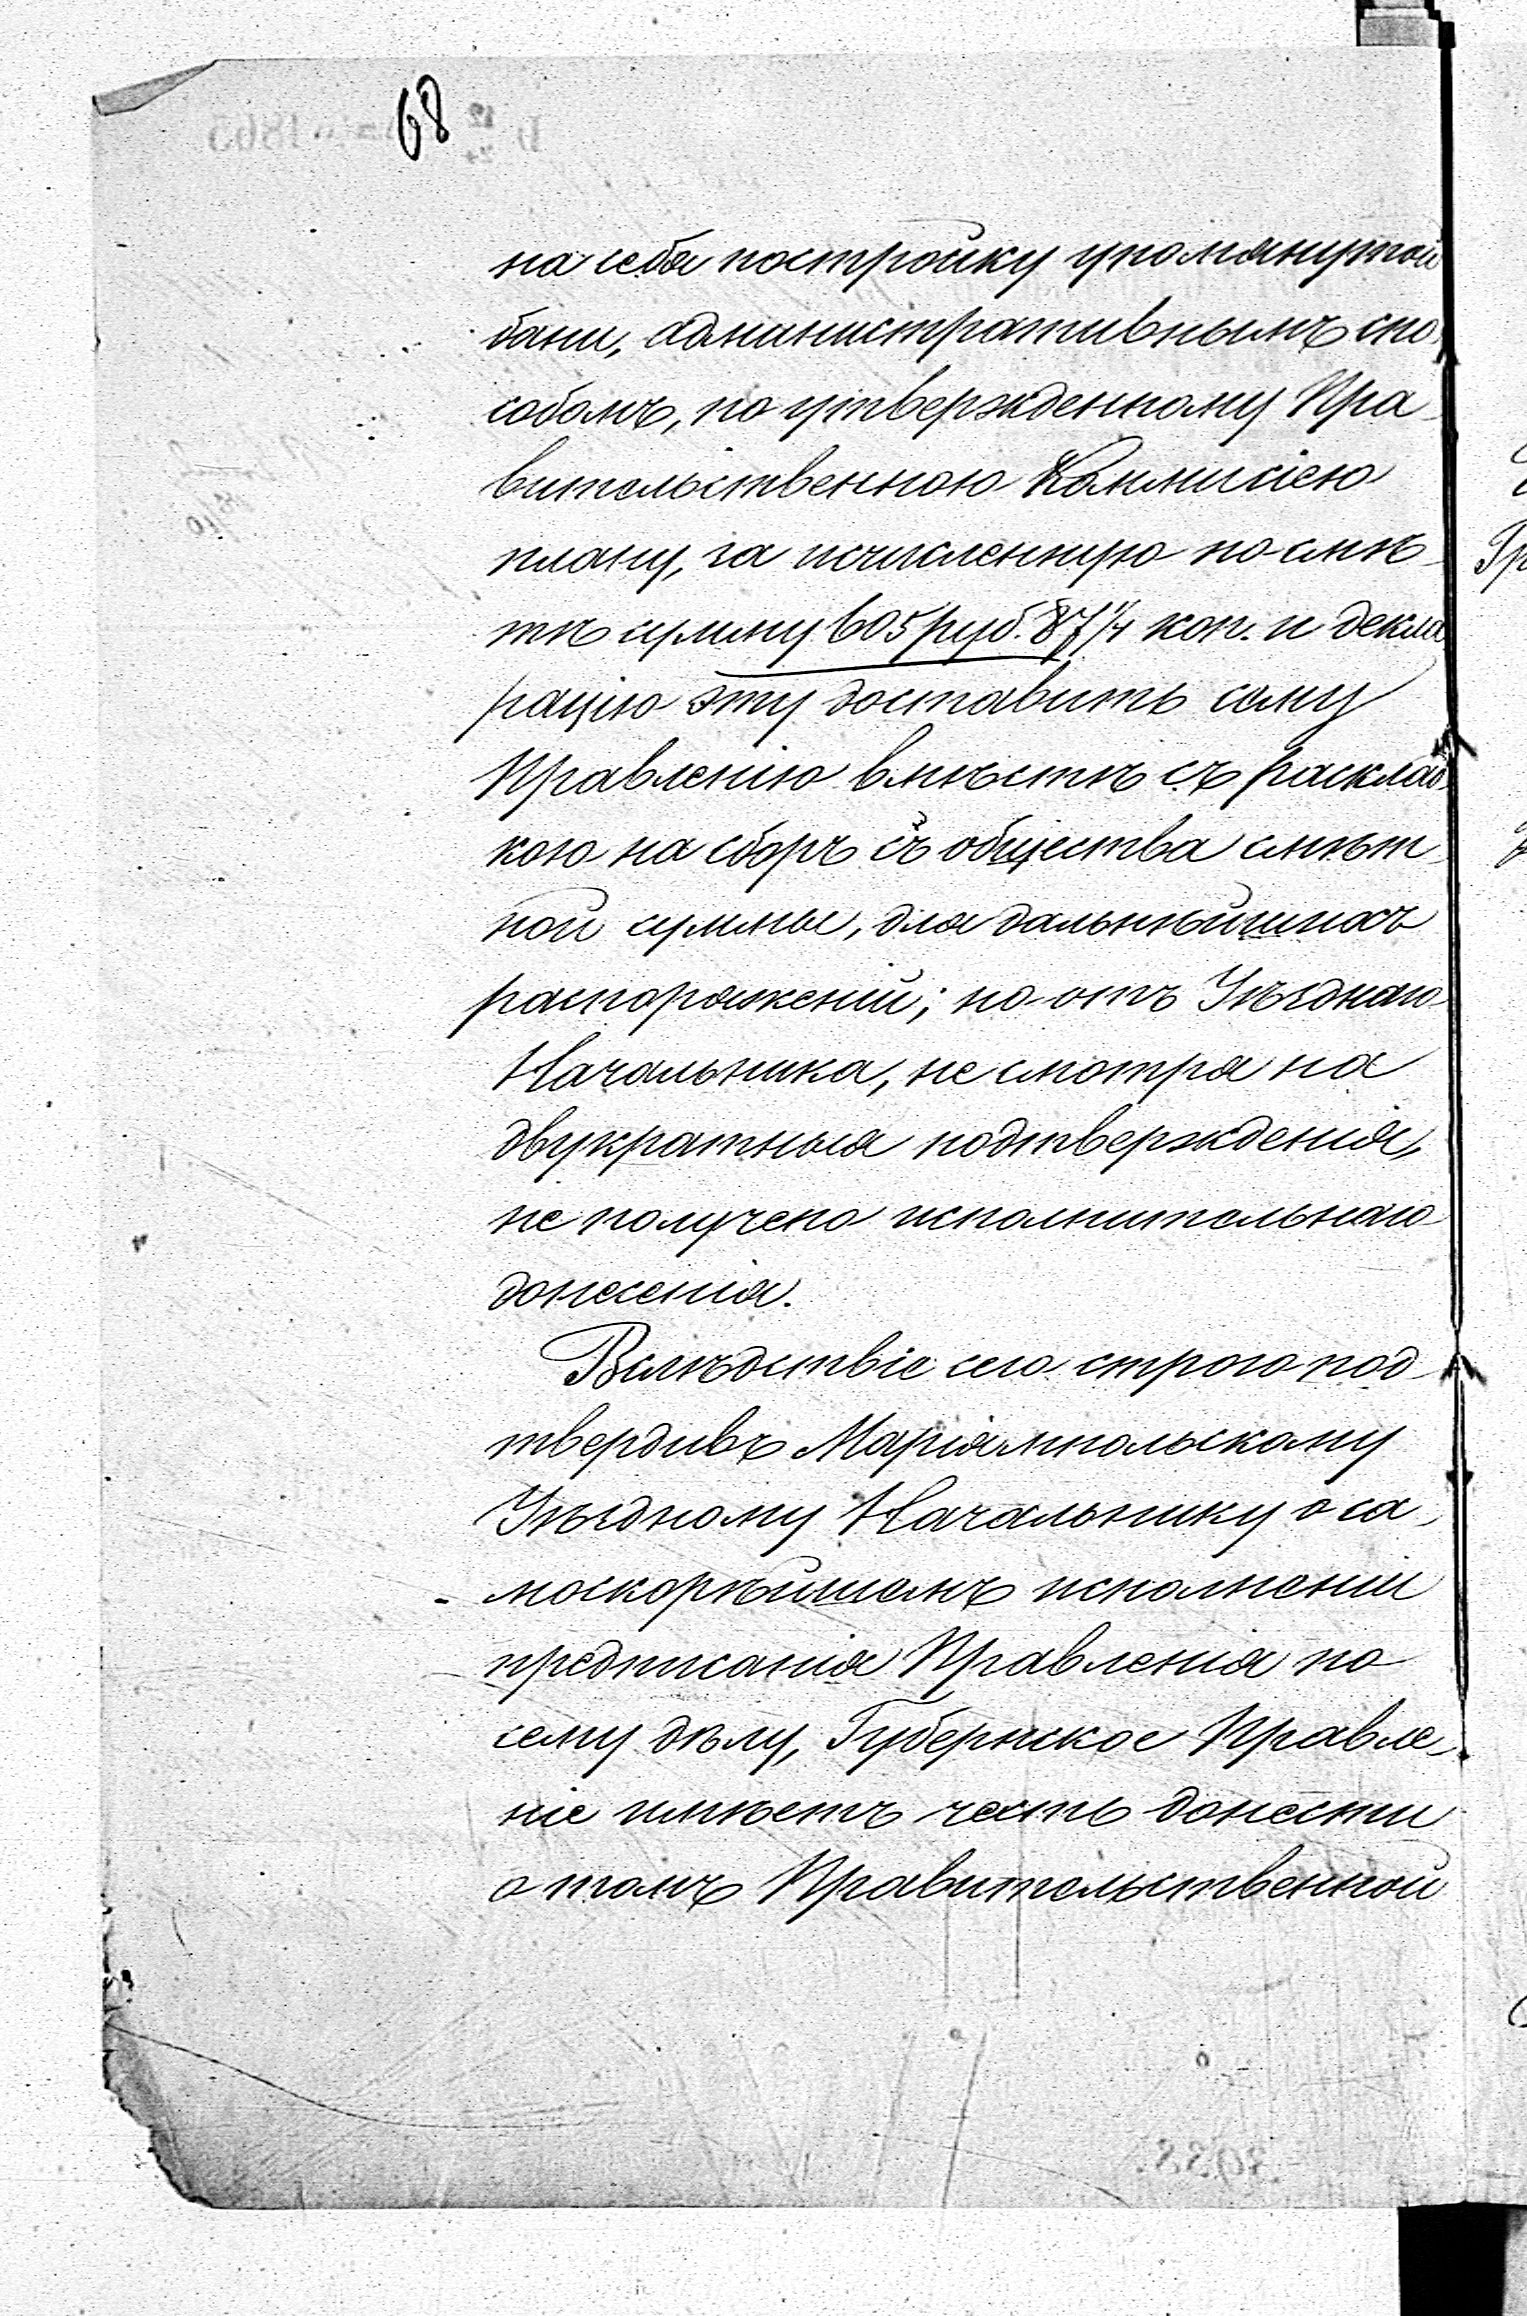 68
на себя постройку упомянутой
бани, административнымъ спо-
собомъ, по утвержденному Пра-
вительственною Коммисіею
плану, за исчисленную по смѣ-
тѣ сумму 605 руб. 87 1/4 коп. и декла-
рацію эту доставить сему
Правленію вмѣстѣ съ расклад-
кою на сборъ съ общества смѣт-
ной суммы, для дальнѣйшихъ
распоряженій; но отъ Уѣзднаго
Начальника, не смотря на
двукратныя подтвержденія,
не получено исполнительнаго
донесенія.
Вслѣдствіе сего строго под-
твердивъ Маріямпольскому
Уѣздному Начальнику о са-
москорѣйшемъ исполненіи
предписанія Правленія по
сему дѣлу, Губернское Правле-
ніе имѣетъ честь донести
о томъ Правительственной